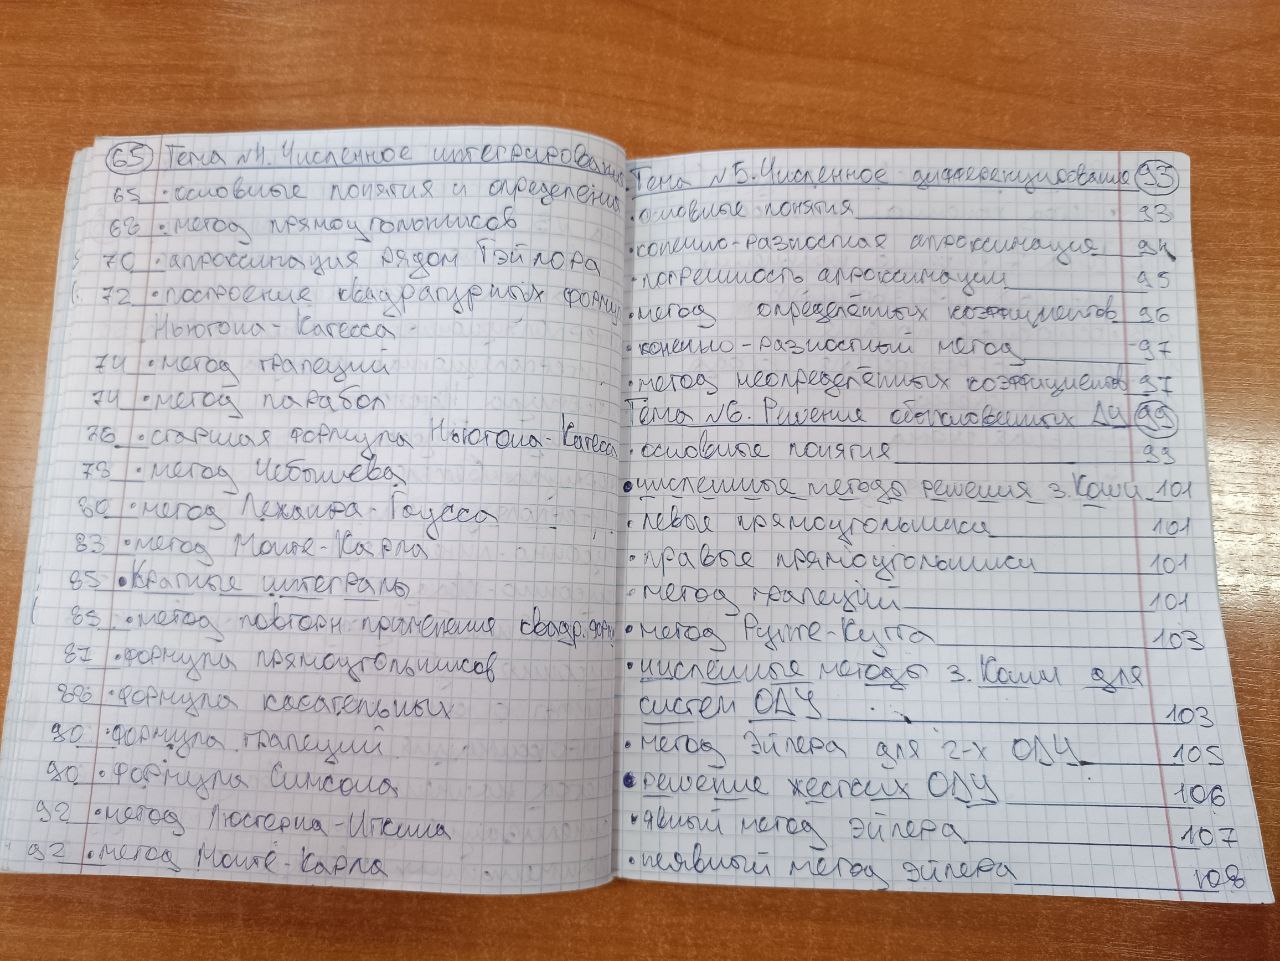 65 Тема №4. Численное интегрирование
65 • основные понятия и определения
68 • метод прямоугольников
70 • апроксимация рядом Тэйлора
72 • построение квадратурных формул
Ньютона-Котесса
74 • метод трапеций
74 • метод парабол
76 • старшая формула Ньютона-Котесса
78 • метод Чебышева
80 • метод Лежандра-Гаусса
83 • метод Монте-Карла
85 • Кратные интегралы
85 • метод повторн применения квадр. форм
87 • формула прямоугольников
88 • формула касательных
90 • формула трапеций
90 • формула Симсона
92 • метод Люстерна-Иткина
92 • метод Монте-Карла
Тема №5. Численное дифференцирование 93
• основные понятия 93
• конечно-разностная апроксимация 94
• погрешность апроксимации 95
• метод определённых коэффициентов 96
• конечно-разностный метод 97
• метод неопределённых коэффициентов 97
Тема №6. Решение обыкновенных ДУ 99
• основные понятия 99
• численные методы решения з. Коши 101
• левые прямоугольники 101
• правые прямоугольники 101
• метод трапеций 101
• метод Рунге-Кутта 103
• численные методы з. Коши для
систем ОДУ 103
• метод Эйлера для 2-х ОДУ 105
• решение жестких ОДУ 106
• явный метод Эйлера 107
• неявный метод Эйлера 108